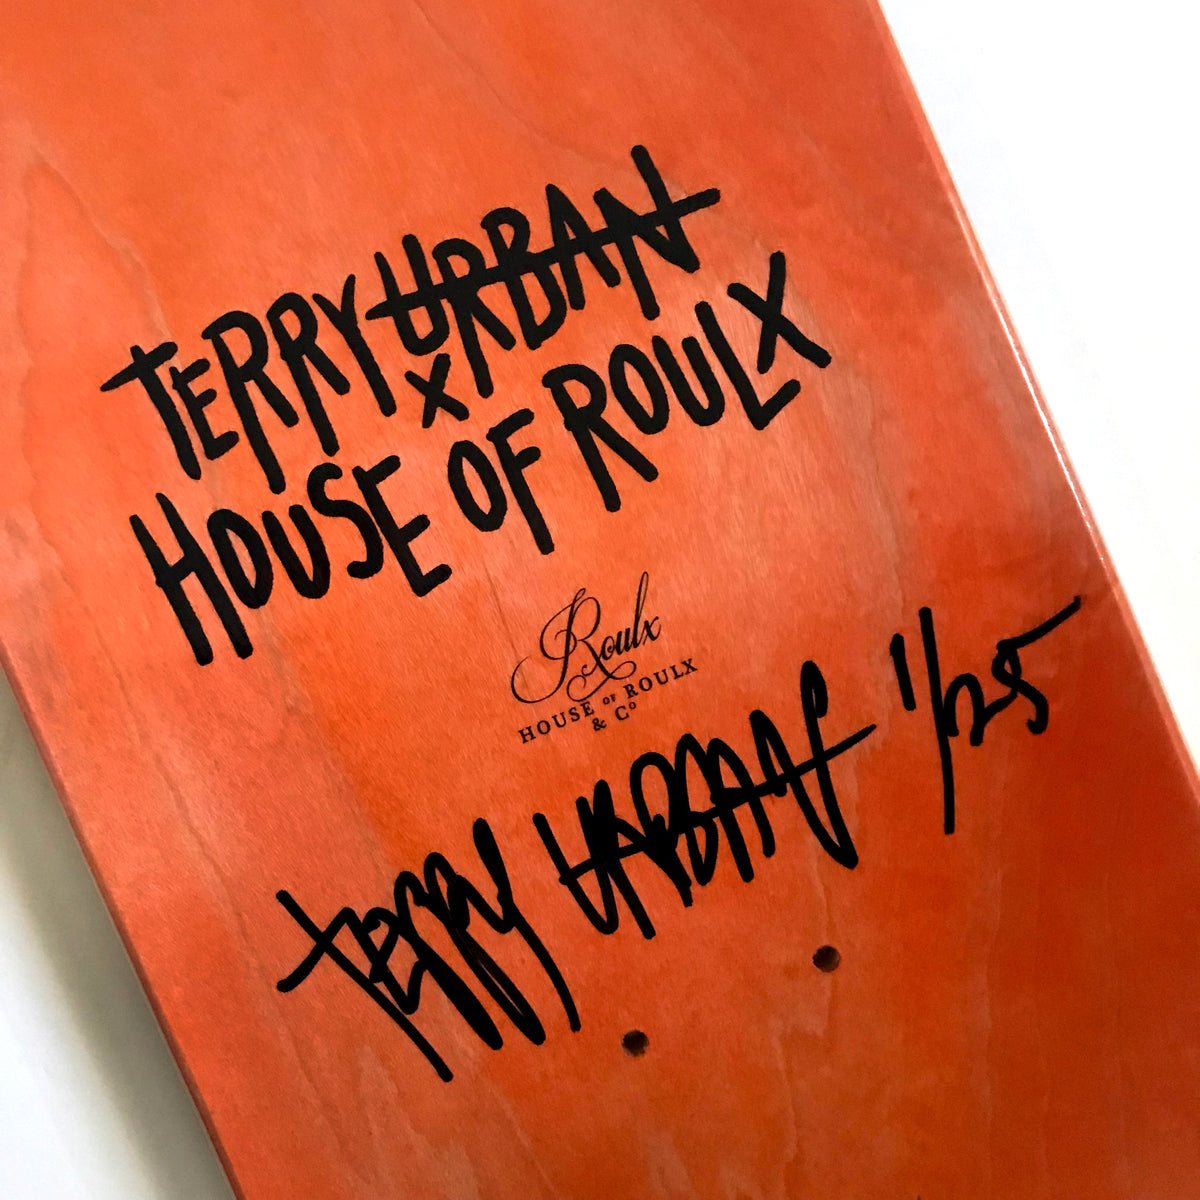 TERRY URBAN
x
HOUSE OF ROULX
Roulx
HOUSE OF ROULX
& Cº
TERRY URBAN 1/25